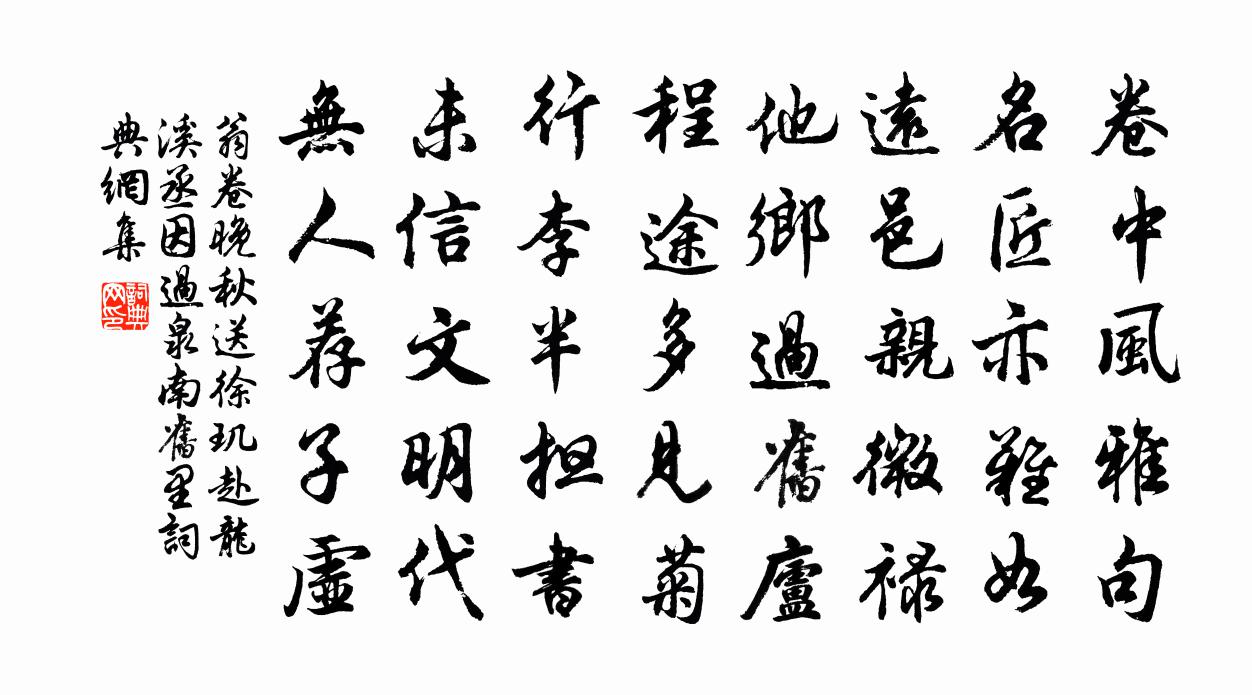 卷中風雅句
名匠亦難如
遠邑親微禄
他鄉過舊廬
程途多見菊
行李半担書
未信文明代
無人荐子虛
翁卷晚秋送徐玑赴龍
溪丞因過泉南舊里詞
典網集
詞典
网印